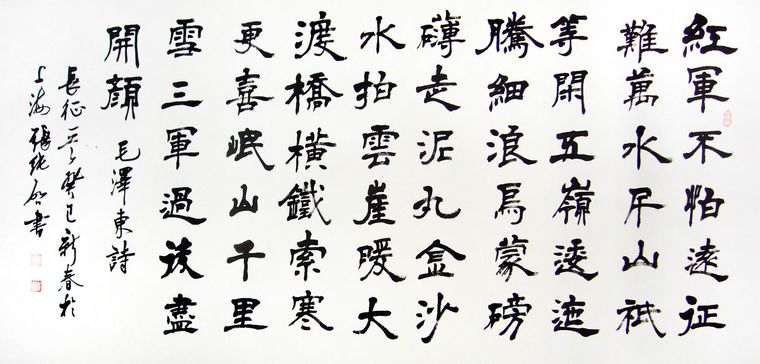 紅軍不怕遠征
難萬水千山祇
等閑五嶺逶迤
騰細浪烏蒙磅
礴走泥丸金沙
水拍雲崖暖大
渡橋橫鐵索寒
更喜岷山千里
雪三軍過後盡
開顏 毛澤東詩
長征 癸巳新春於
上海張 書